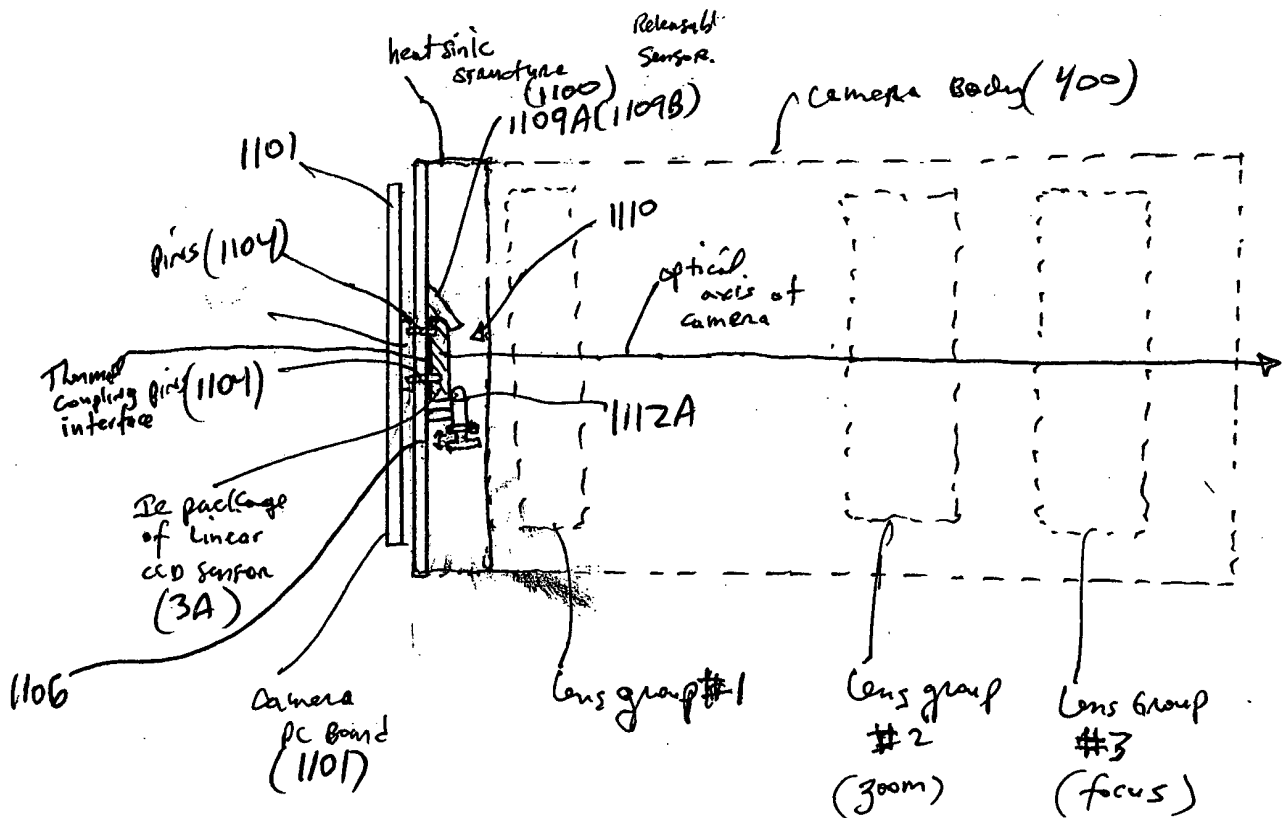 heatsink
structure
(1100)
Releasabl.
Sensor.
1109A(1109B)
camera Body(400)
1101
pins(1104)
1110
optical
axis of
camera
Thermal
coupling
interface
pins(1104)
1112A
Ic package
of Linear
CCD Sensor
(3A)
1106
Camera
PC Board
(1101)
Lens group#1
Lens group
#2
(zoom)
Lens Group
#3
(focus)